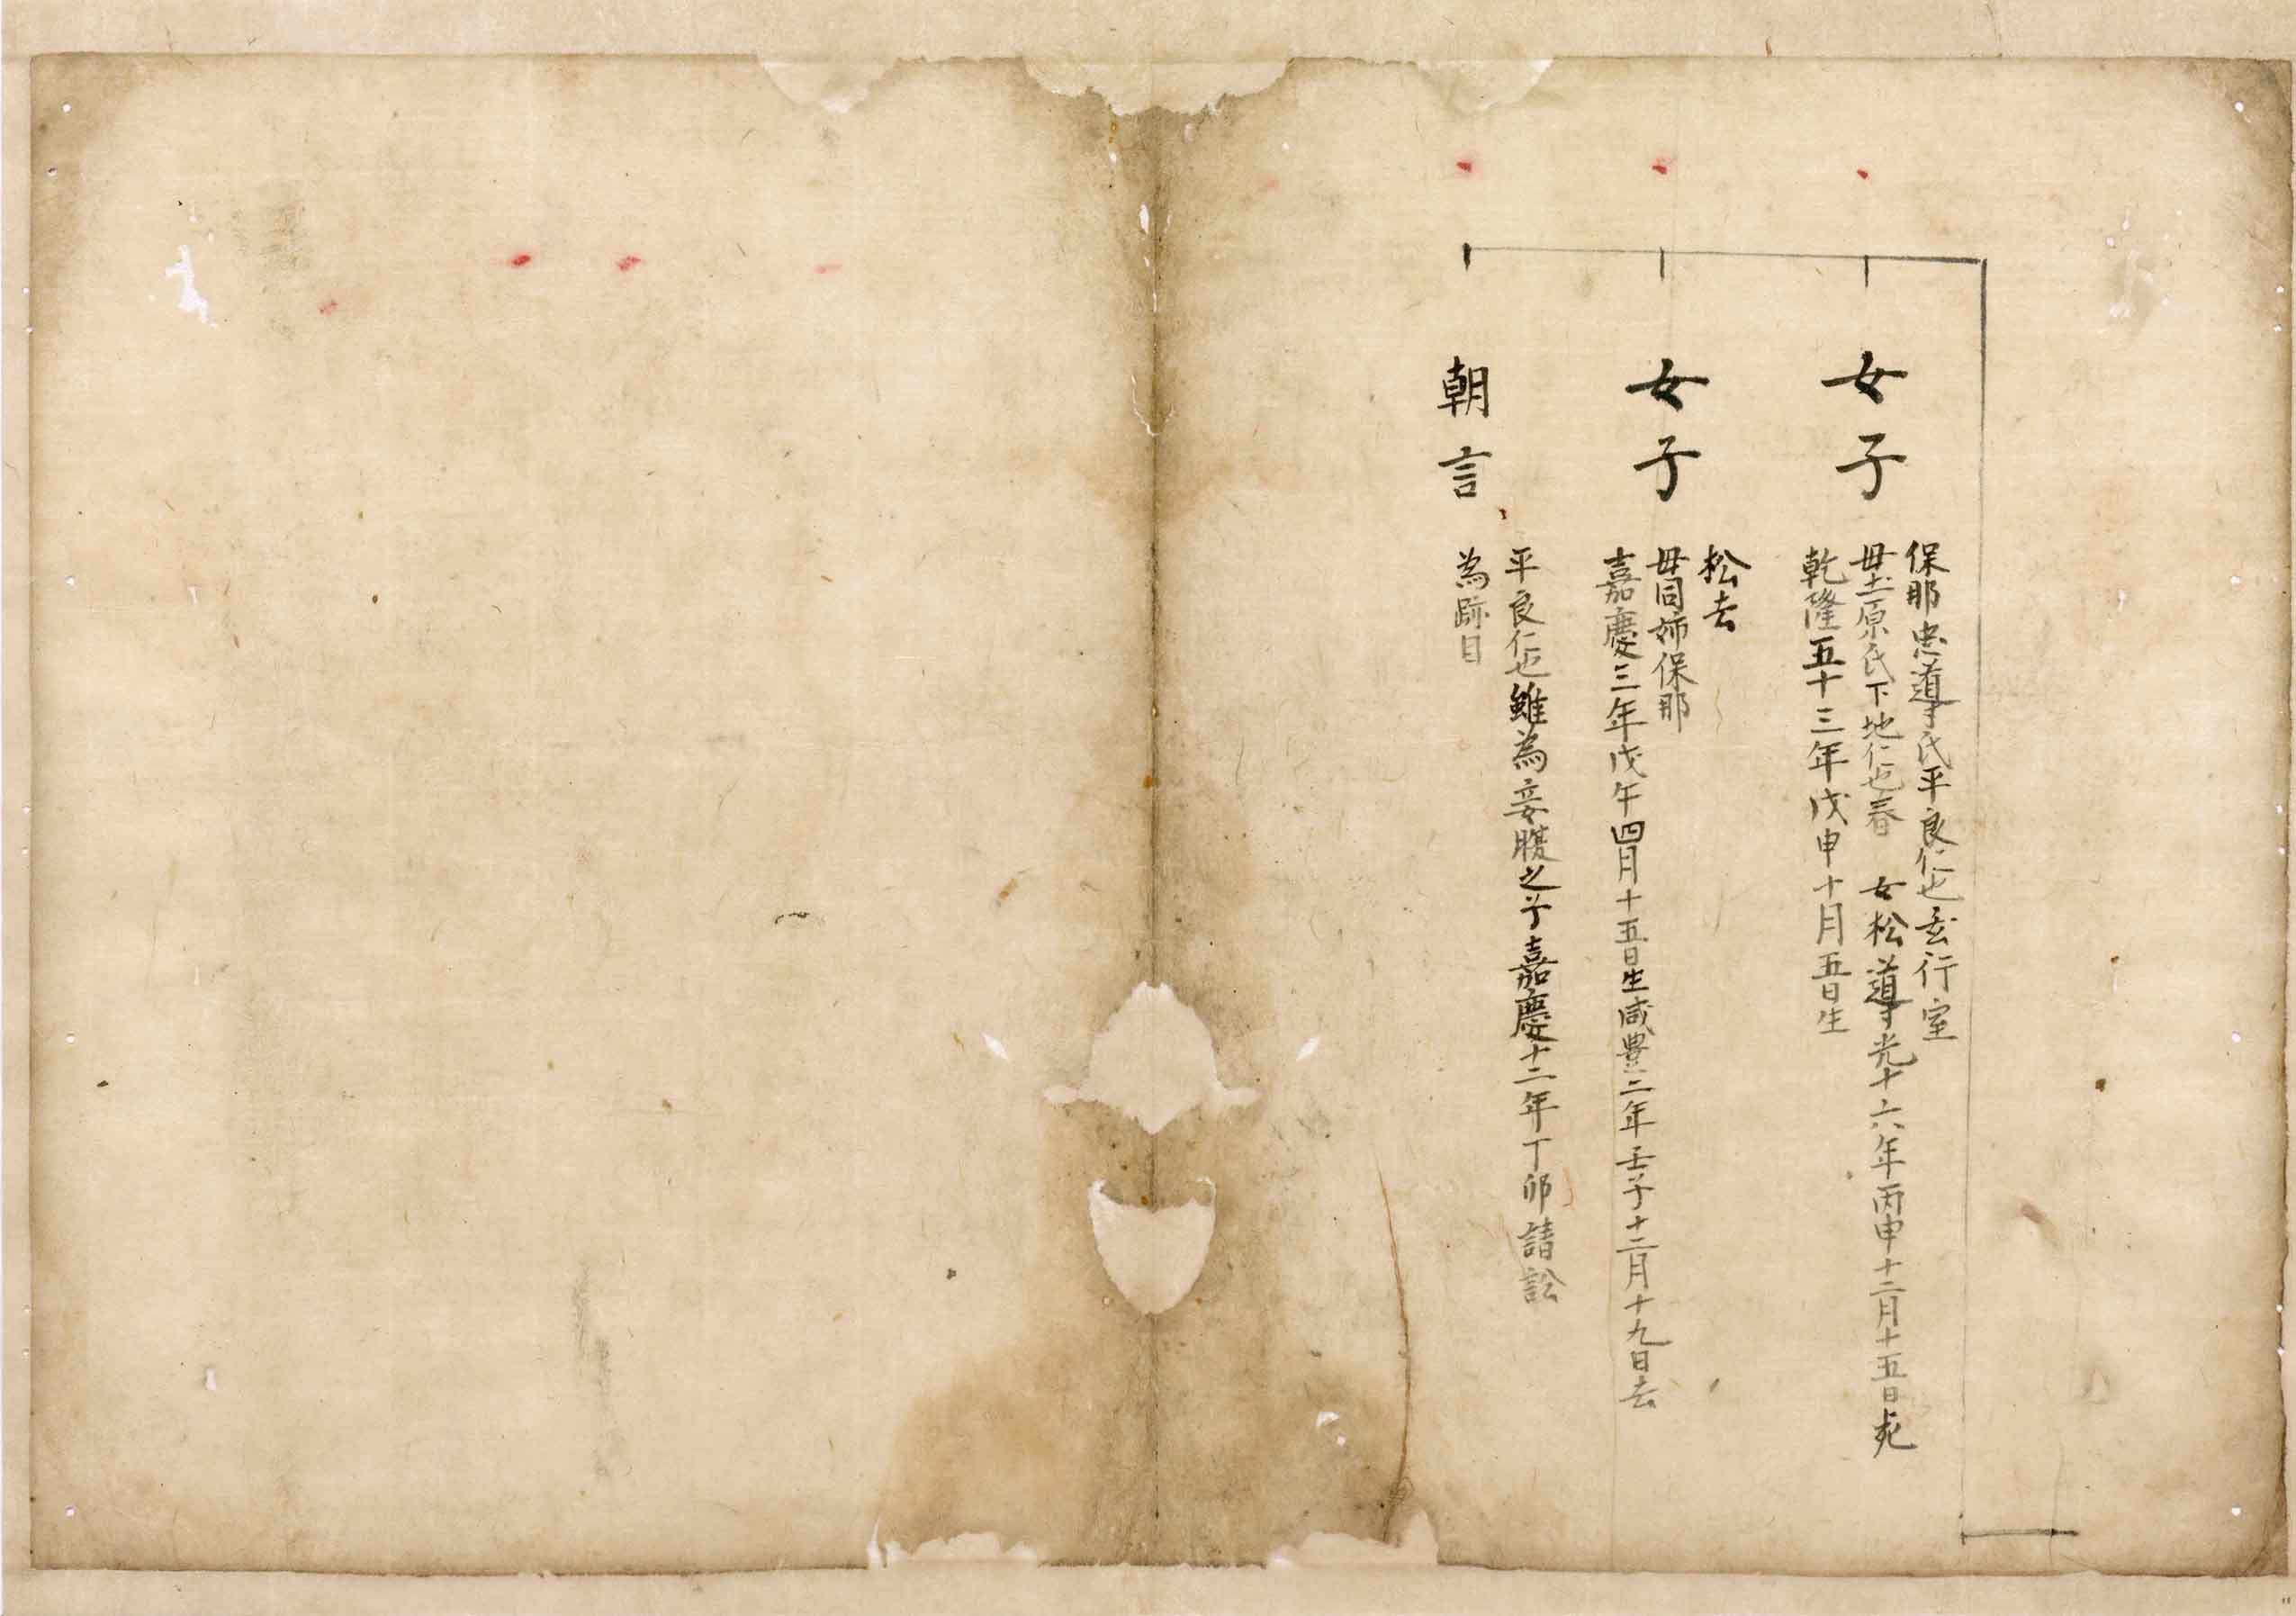 女子
保那忠導氏平良仁也玄行室
母土原氏下地仁也春 女松道光十六年丙申十二月十五日死
乾隆五十三年戊申十月五日生
女子
松去
母同姉保那
嘉慶三年戊午四月十五日生咸豊二年壬子十二月十九日去
朝言
平良仁也雖為妾腹之子嘉慶十二年丁卯請訟
為跡目